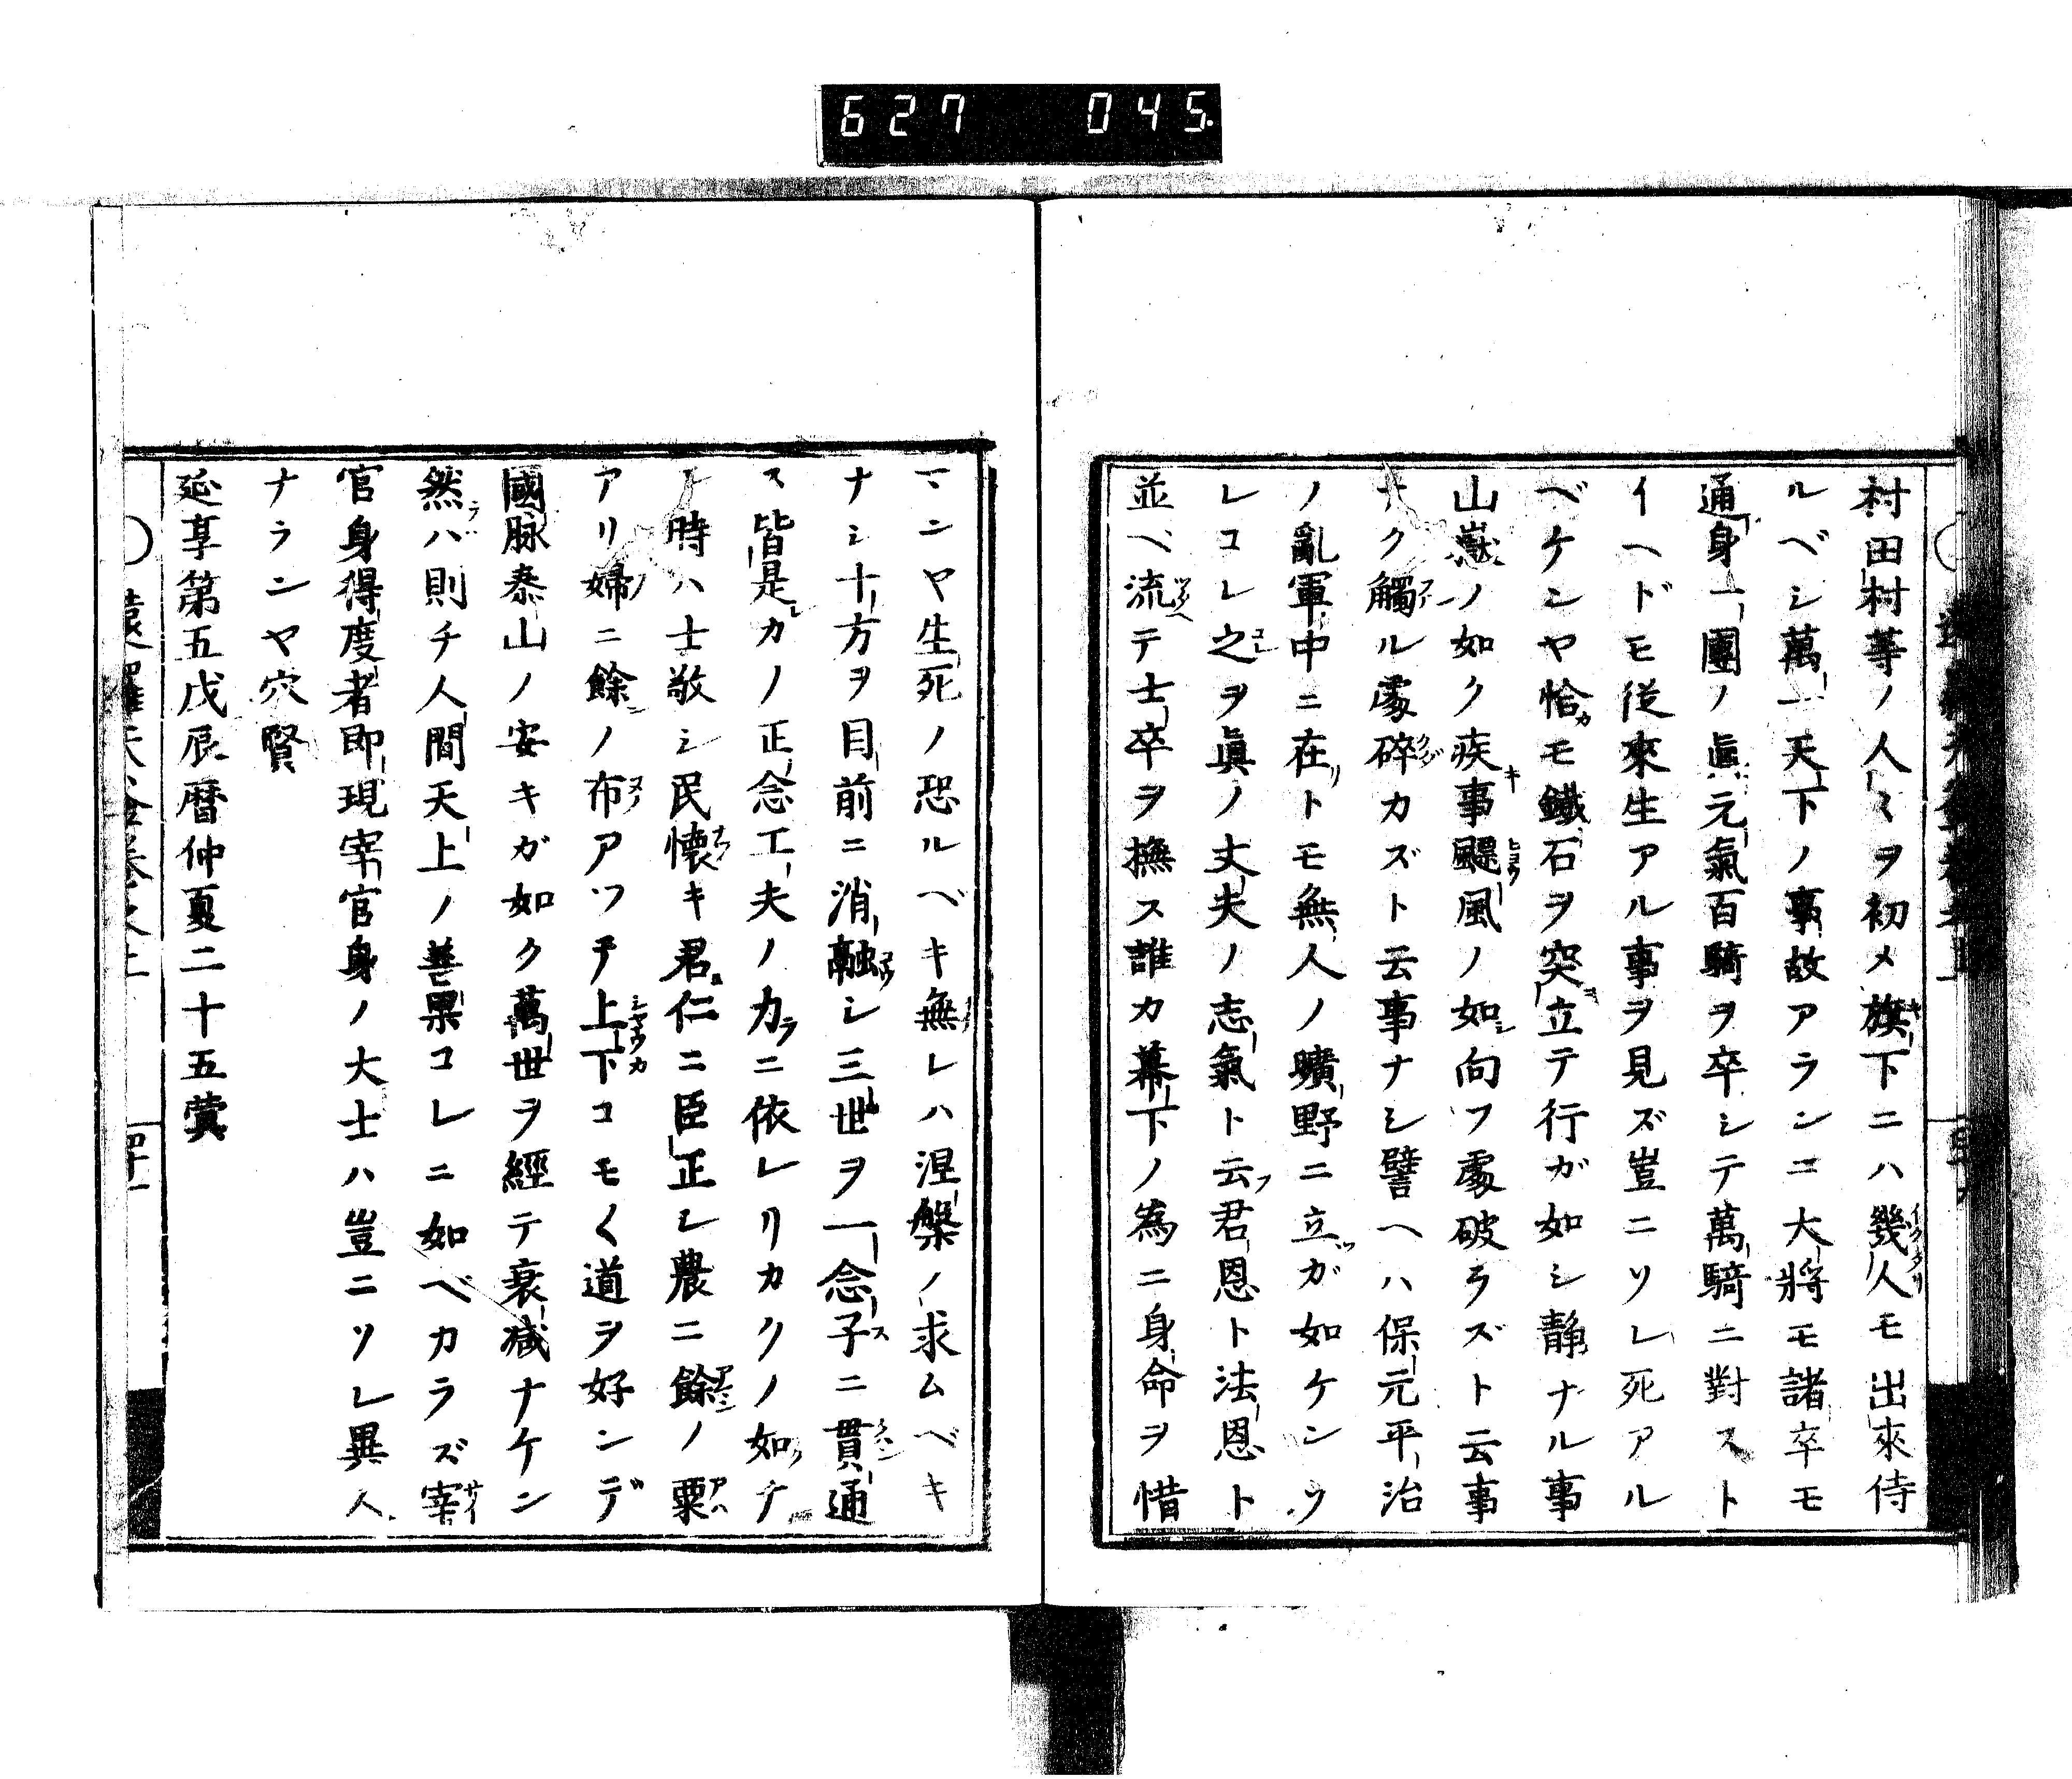 627 045
村田村等ノ人〻ヲ初メ旗下ニハ幾人モ出來侍
ルベシ萬一天下ノ事故アランニ大將モ諸卒モ
通身一團ノ眞元氣百騎ヲ卒シテ萬騎ニ對スト
イヘドモ従來生アル事ヲ見ズ豈ニソレ死アル
ベケンヤ恰モ鐵石ヲ突立テ行ガ如シ靜ナル事
山嶽ノ如ク疾事颷風ノ如シ向フ處破ラズト云事
ナク觸ル處碎カズト云事ナシ譬ヘハ保元平治
ノ亂軍中ニ在トモ無人ノ曠野ニ立ガ如ケンソ
レコレ之ヲ眞ノ丈夫ノ志氣ト云君恩ト法恩ト
並ベ流テ士卒ヲ撫ス誰カ幕下ノ為ニ身命ヲ惜
マンヤ生死ノ恐ルベキ無レハ涅槃ノ求ムベキ
ナシ十方ヲ目前ニ消融シ三世ヲ一念子ニ貫通
ス皆是カノ正念工夫ノ力ニ依レリカクノ如ナ
ル時ハ士敬シ民懷キ君仁ニ臣正シ農ニ餘ノ粟
アリ婦ニ餘ノ布アツテ上下コモ〱道ヲ好ンデ
國脉泰山ノ安キガ如ク萬世ヲ經テ衰减ナケン
然ハ則チ人間天上ノ善果コレニ如ベカラズ宰
官身得度者即現宰官身ノ大士ハ豈ニソレ異人
ナランヤ穴賢
延享第五戊辰曆仲夏二十五蓂